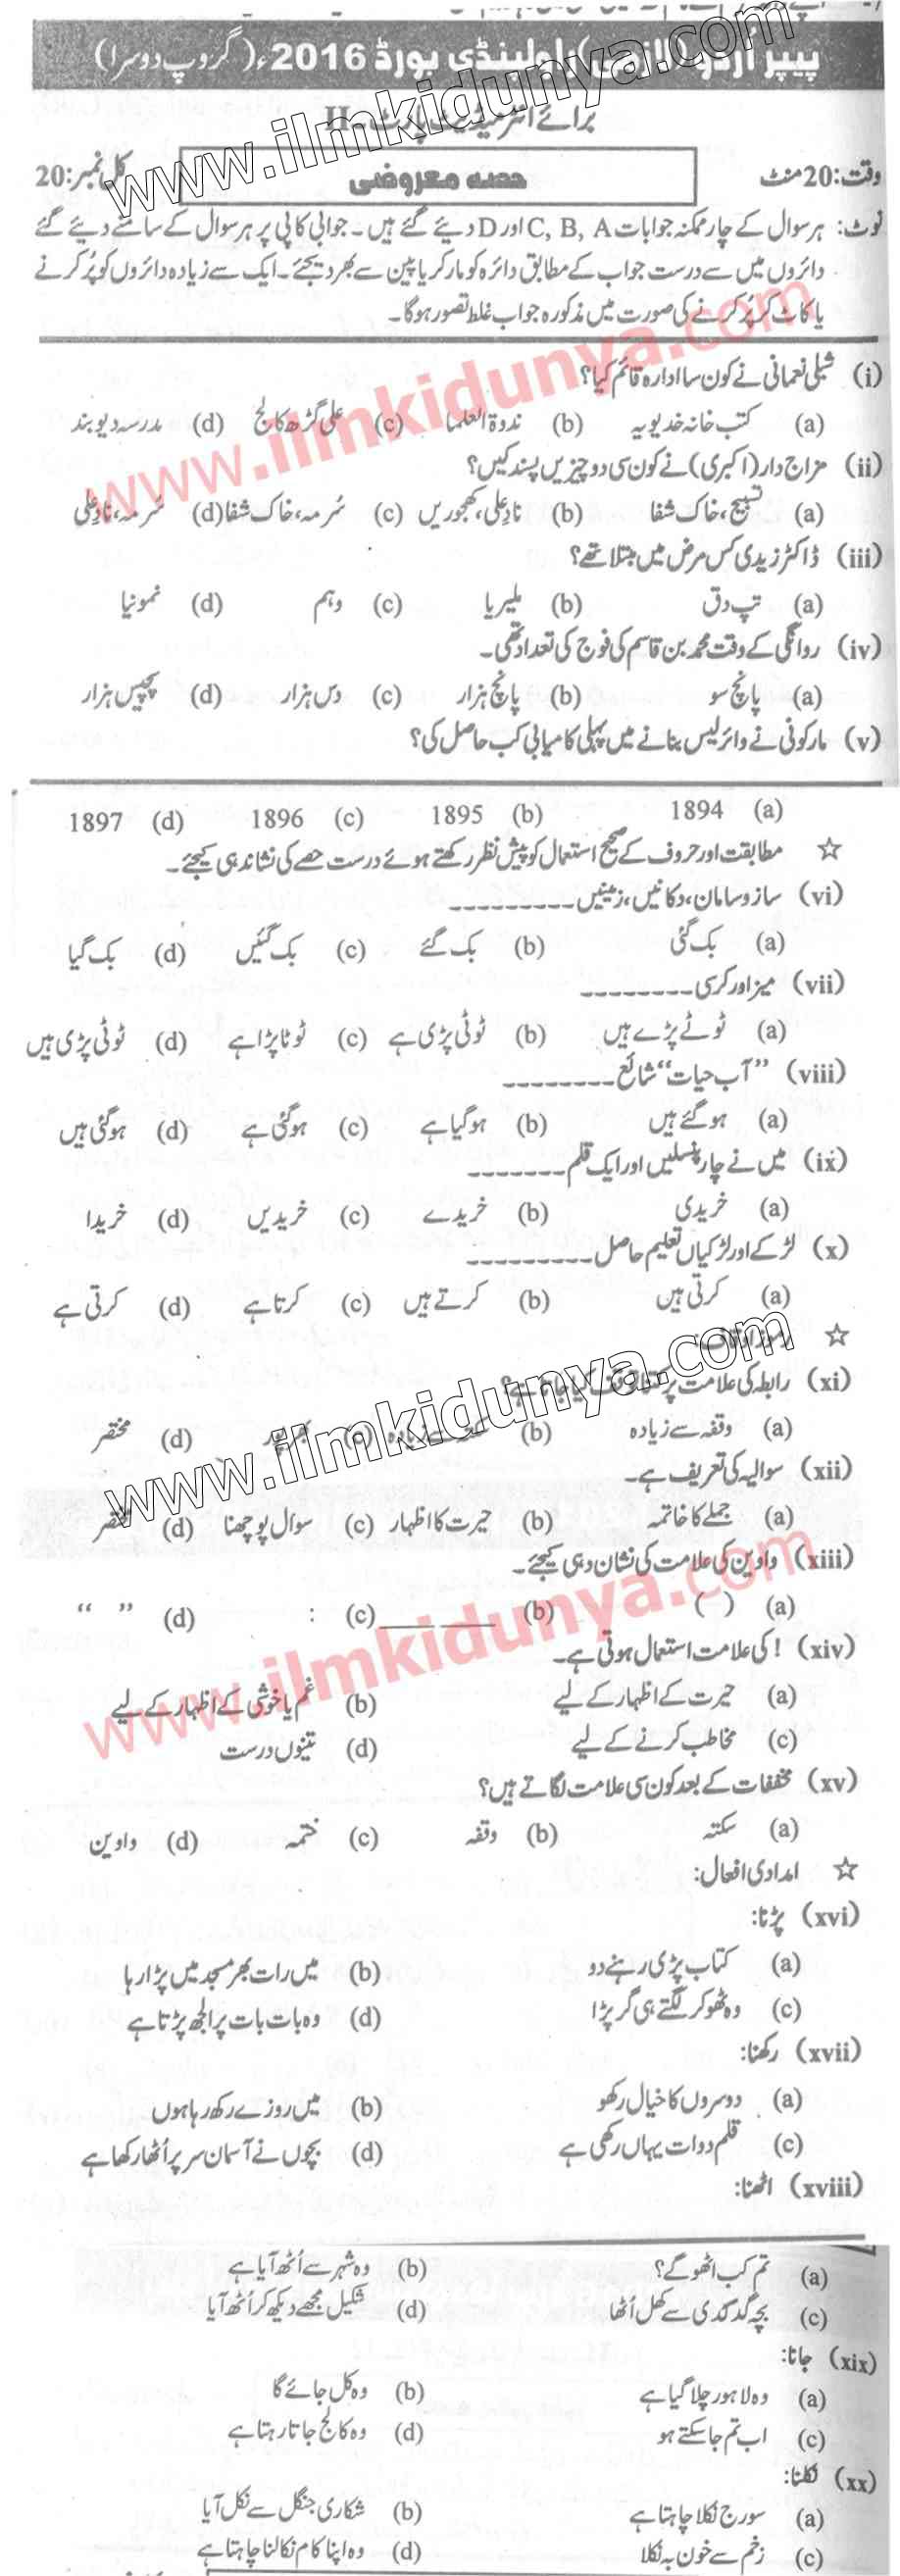 پیپر اُردو (لازمی) راولپنڈی بورڈ 2016ء (گروپ دوسرا)
برائے انٹرمیڈیٹ پارٹ ـ II
وقت: 20 منٹ حصہ معروضی کل نمبر: 20
نوٹ: ہر سوال کے چار ممکنہ جوابات C, B, A اور D دیئے گئے ہیں۔ جوابی کاپی پر ہر سوال کے سامنے دیئے گئے
دائروں میں سے درست جواب کے مطابق دائرہ کو مارکر یا پین سے بھر دیجئے۔ ایک سے زیادہ دائروں کو پُر کرنے
یا کاٹ کر پُر کرنے کی صورت میں مذکورہ جواب غلط تصور ہوگا۔
(i) شبلی نعمانی نے کون سا ادارہ قائم کیا؟
(a) کتب خانہ خدیویہ (b) ندوۃ العلما (c) علی گڑھ کالج (d) مدرسہ دیوبند
(ii) مزاج دار (اکبری) نے کون سی دو چیزیں پسند کیں؟
(a) تسبیح، خاک شفا (b) نادِ علی، کھجوریں (c) سُرمہ، خاک شفا (d) سُرمہ، نادِ علی
(iii) ڈاکٹر زیدی کس مرض میں مبتلا تھے؟
(a) تپ دق (b) ملیریا (c) وہم (d) نمونیا
(iv) روانگی کے وقت محمد بن قاسم کی فوج کی تعداد تھی۔
(a) پانچ سو (b) پانچ ہزار (c) دس ہزار (d) پچیس ہزار
(v) مارکونی نے وائرلیس بنانے میں پہلی کامیابی کب حاصل کی؟
(a) 1894 (b) 1895 (c) 1896 (d) 1897
☆ مطابقت اور حروف کے صحیح استعمال کو پیش نظر رکھتے ہوئے درست حصے کی نشاندہی کیجئے۔
(vi) ساز و سامان، دکانیں، زمینیں ---------
(a) بک گئی (b) بک گئے (c) بک گئیں (d) بک گیا
(vii) میز اور کرسی --------
(a) ٹوٹے پڑے ہیں (b) ٹوٹی پڑی ہے (c) ٹوٹا پڑا ہے (d) ٹوٹی پڑی ہیں
(viii) "آب حیات" شائع --------
(a) ہو گئے ہیں (b) ہو گیا ہے (c) ہو گئی ہے (d) ہو گئی ہیں
(ix) میں نے چار پنسلیں اور ایک قلم -------
(a) خریدی (b) خریدے (c) خریدیں (d) خریدا
(x) لڑکے اور لڑکیاں تعلیم حاصل ---------
(a) کرتی ہیں (b) کرتے ہیں (c) کرتا ہے (d) کرتی ہے
☆ رموز اوقاف:
(xi) رابطہ کی علامت پر کتنا توقف کیا جاتا ہے؟
(a) وقفہ سے زیادہ (b) سکتہ سے زیادہ (c) بھرپور (d) مختصر
(xii) سوالیہ کی تعریف ہے۔
(a) جملے کا خاتمہ (b) حیرت کا اظہار (c) سوال پوچھنا (d) مختصر
(xiii) واوین کی علامت کی نشان دہی کیجئے۔
(a) ( ) (b) ___ ___ (c) : (d) “ ”
(xiv) ! کی علامت استعمال ہوتی ہے۔
(a) حیرت کے اظہار کے لیے (b) غم یا خوشی کے اظہار کے لیے
(c) مخاطب کرنے کے لیے (d) تینوں درست
(xv) مخففات کے بعد کون سی علامت لگاتے ہیں؟
(a) سکتہ (b) وقفہ (c) ختمہ (d) واوین
☆ امدادی افعال:
(xvi) پڑنا:
(a) کتاب پڑی رہنے دو (b) میں رات بھر مسجد میں پڑا رہا
(c) وہ ٹھوکر لگتے ہی گر پڑا (d) وہ بات بات پر الجھ پڑتا ہے
(xvii) رکھنا:
(a) دوسروں کا خیال رکھو (b) میں روزے رکھ رہا ہوں
(c) قلم دوات یہاں رکھی ہے (d) بچوں نے آسمان سر پر اُٹھا رکھا ہے
(xviii) اٹھنا:
(a) تم کب اٹھو گے؟ (b) وہ شہر سے اُٹھ آیا ہے
(c) بچہ گدگدی سے کھل اُٹھا (d) شکیل مجھے دیکھ کر اُٹھ آیا
(xix) جانا:
(a) وہ لاہور چلا گیا ہے (b) وہ کل جائے گا
(c) اب تم جا سکتے ہو (d) وہ کالج جاتا رہتا ہے
(xx) نکلنا:
(a) سورج نکلا چاہتا ہے (b) شکاری جنگل سے نکل آیا
(c) زخم سے خون بہ نکلا (d) وہ اپنا کام نکالنا چاہتا ہے
www.ilmkidunya.com
www.ilmkidunya.com
www.ilmkidunya.com
www.ilmkidunya.com